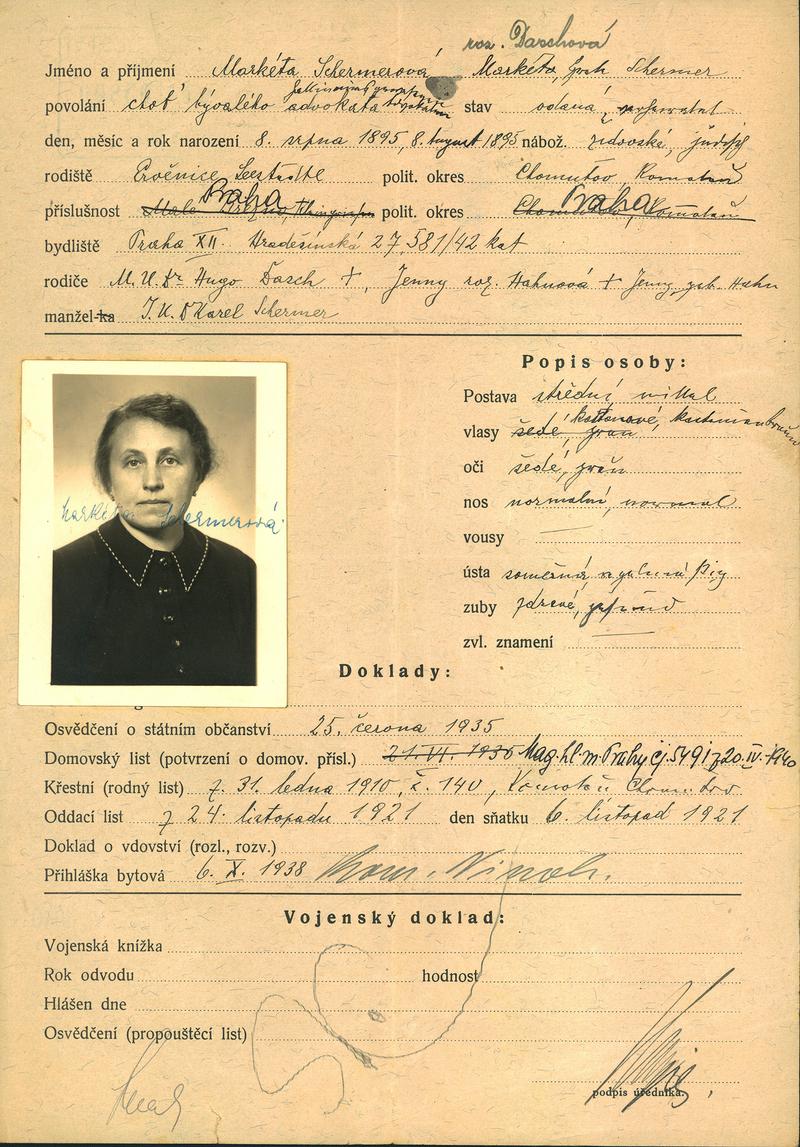 roz. Daschová
Jméno a příjmení Markéta Schermerová Markéta, Schermer
povolání choť bývalého advokáta stav vdaná, verheiratet
den, měsíc a rok narození 8. srpna 1895, 8. August 1895 nábož. židovské, jüdisch
rodiště Ervěnice Seestadtl polit. okres Chomutov Komotau
Praha Praha
příslušnost polit. okres Chomutov, Komotau
bydliště Praha XII. Hradešínská 27, 581/42 kat
rodiče M.U.Dr Hugo Dasch +, Jenny roz. Hahnová + Jenny, geb. Hahn
manžel-ka J.U.Dr Karel Schermer
Popis osoby:
Postava střední mittel
kaštanové, kastanienbraun
vlasy šedé, grau
oči šedé, grau
nos normální, normal
vousy
ústa souměrná,
zuby zdravé, gesund
zvl. znamení
Markéta Schermerová
Doklady:
Osvědčení o státním občanství 25. června 1935
Domovský list (potvrzení o domov. přísl.) 21. VI. 1935 Mag. hl. m. Prahy čj. 5491 z 20. IV. 1940
Křestní (rodný list) z 31. ledna 1910, č. 140, Komotau Chomutov
Oddací list z 24. listopadu 1921 den sňatku 6. listopad 1921
Doklad o vdovství (rozl., rozv.)
Přihláška bytová 6. X. 1938
Vojenský doklad:
Vojenská knížka
Rok odvodu hodnost
Hlášen dne
Osvědčení (propouštěcí list)
podpis úředníka.